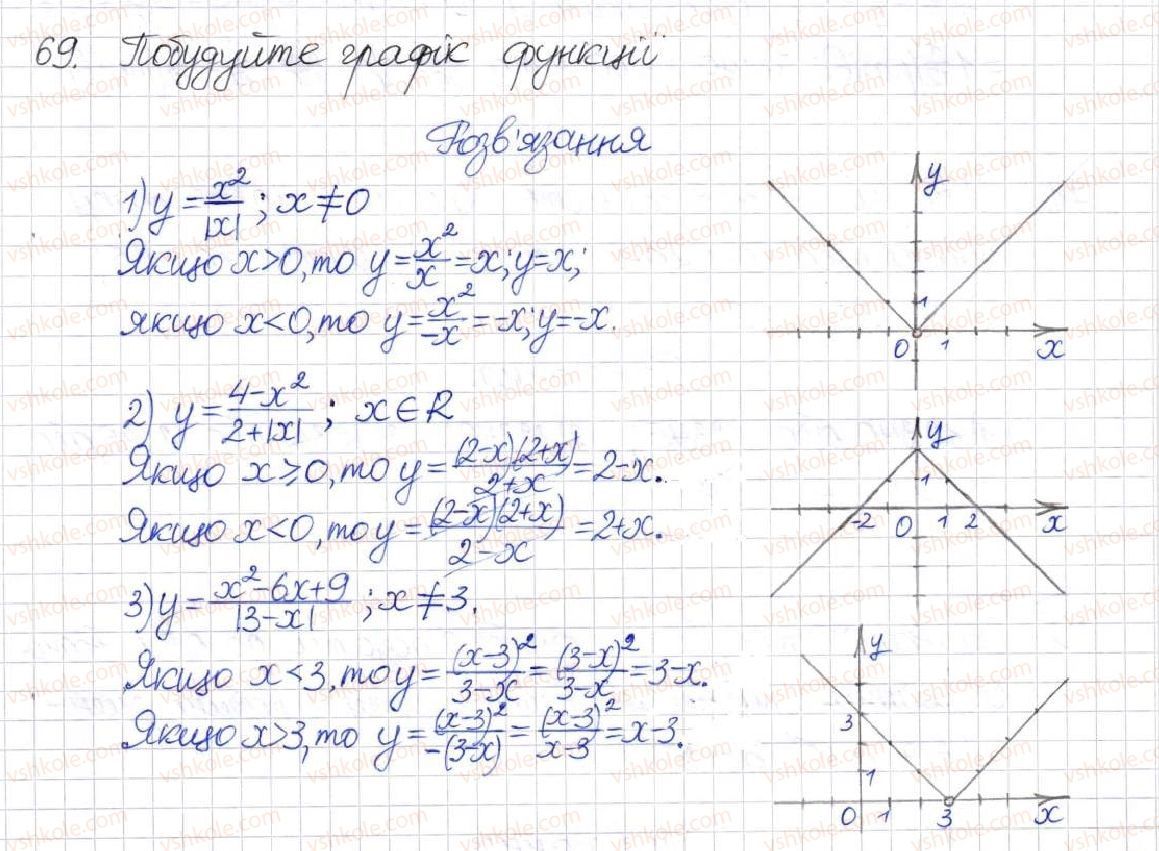 69. Побудуйте графік функції
Розв'язання
1) y = x²/|x| ; x ≠ 0
Якщо x>0, то y = x²/x = x; y=x;
якщо x<0, то y = x²/-x = -x; y=-x.
2) y = 4-x²/2+|x| ; x ∈ R
Якщо x ⩾ 0, то y = (2-x)(2+x)/2+x = 2-x.
Якщо x<0, то y = (2-x)(2+x)/2-x = 2+x.
3) y = x²-6x+9/|3-x| ; x ≠ 3.
Якщо x<3, то y = (x-3)²/3-x = (3-x)²/3-x = 3-x.
Якщо x>3, то y = (x-3)²/-(3-x) = (x-3)²/x-3 = x-3.
y
1
0 1 x
y
1
-2 0 1 2 x
y
3
1
0 1 3 x
vshkole.com